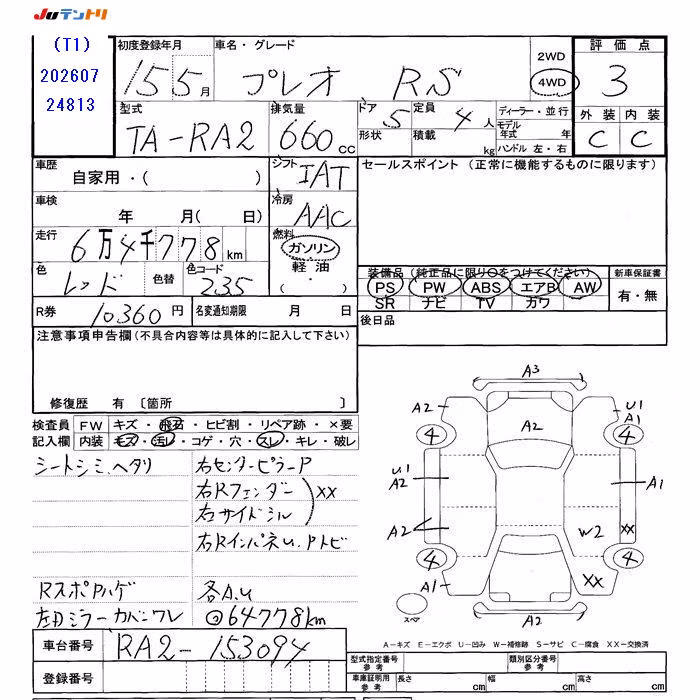 JU テントリ
(T1)
202607
24813
初度登録年月
15 5月
車名・グレード
プレオ RS
2WD
4WD
評価点
3
外装 内装
C C
型式
TA-RA2
排気量
660cc
ドア 5
定員 4人
形状
積載 kg
ディーラー・並行
モデル年式 年
ハンドル 左・右
車歴
自家用・( )
シフト IAT
セールスポイント (正常に機能するものに限ります)
車検
年 月(日)
冷房 AAC
走行
6万4千778km
燃料
ガソリン
軽油
・( )
色
レッド
色替
色コード
235
装備品 (純正品に限り○をつけてください)
PS PW ABS エアB AW
SR ナビ TV カワ
新車保証書
有・無
R券 10360円
名変通知期限 月 日
後日品
注意事項申告欄(不具合内容等は具体的に記入して下さい)
修復歴 有 〔箇所
検査員記入欄
FW キズ・飛石・ヒビ割・リペア跡・×要
内装 キズ・汚レ・コゲ・穴・スレ・キレ・破レ
シートシミ、ヘタリ
右センターピラーP
右Rフェンダー
右サイドシル
XX
右Rインパネu.Pトビ
RスポPハゲ
各A.u
左ドミラーカバーワレ
◎64778km
A3
A2
A2
U1
A1
4
4
A2
U1
A2
A1
A2
W2
XX
4
4
A1
XX
スペア
A2
A-キズ E-エクボ U-凹み W-補修跡 S-サビ C-腐食 XX-交換済
車台番号 RA2-153094
登録番号
型式指定番号 参考
類別区分番号 参考
車庫証明用 参考
長さ cm
幅 cm
高さ cm